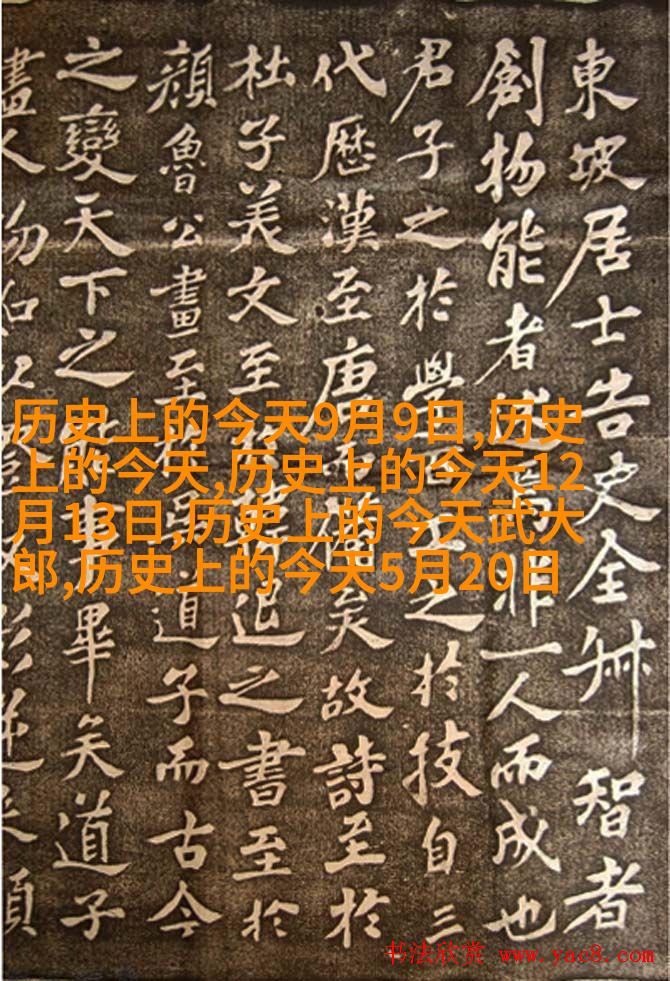 東坡居士告史全叔 智者
創物能者述焉非一人而成也
君子之於學工之於技自三
代歷漢至唐而備矣故詩至於
杜子美文至於韓退之書至於
顏魯公畫至於吳道子而古今
之變天下之能事畢矣道子
畫人物如以燈取影逆來順
历史上的今天9月9日,历史
上的今天,历史上的今天12
月13日,历史上的今天武大
郎,历史上的今天5月20日
书法欣赏 www.yac8.com